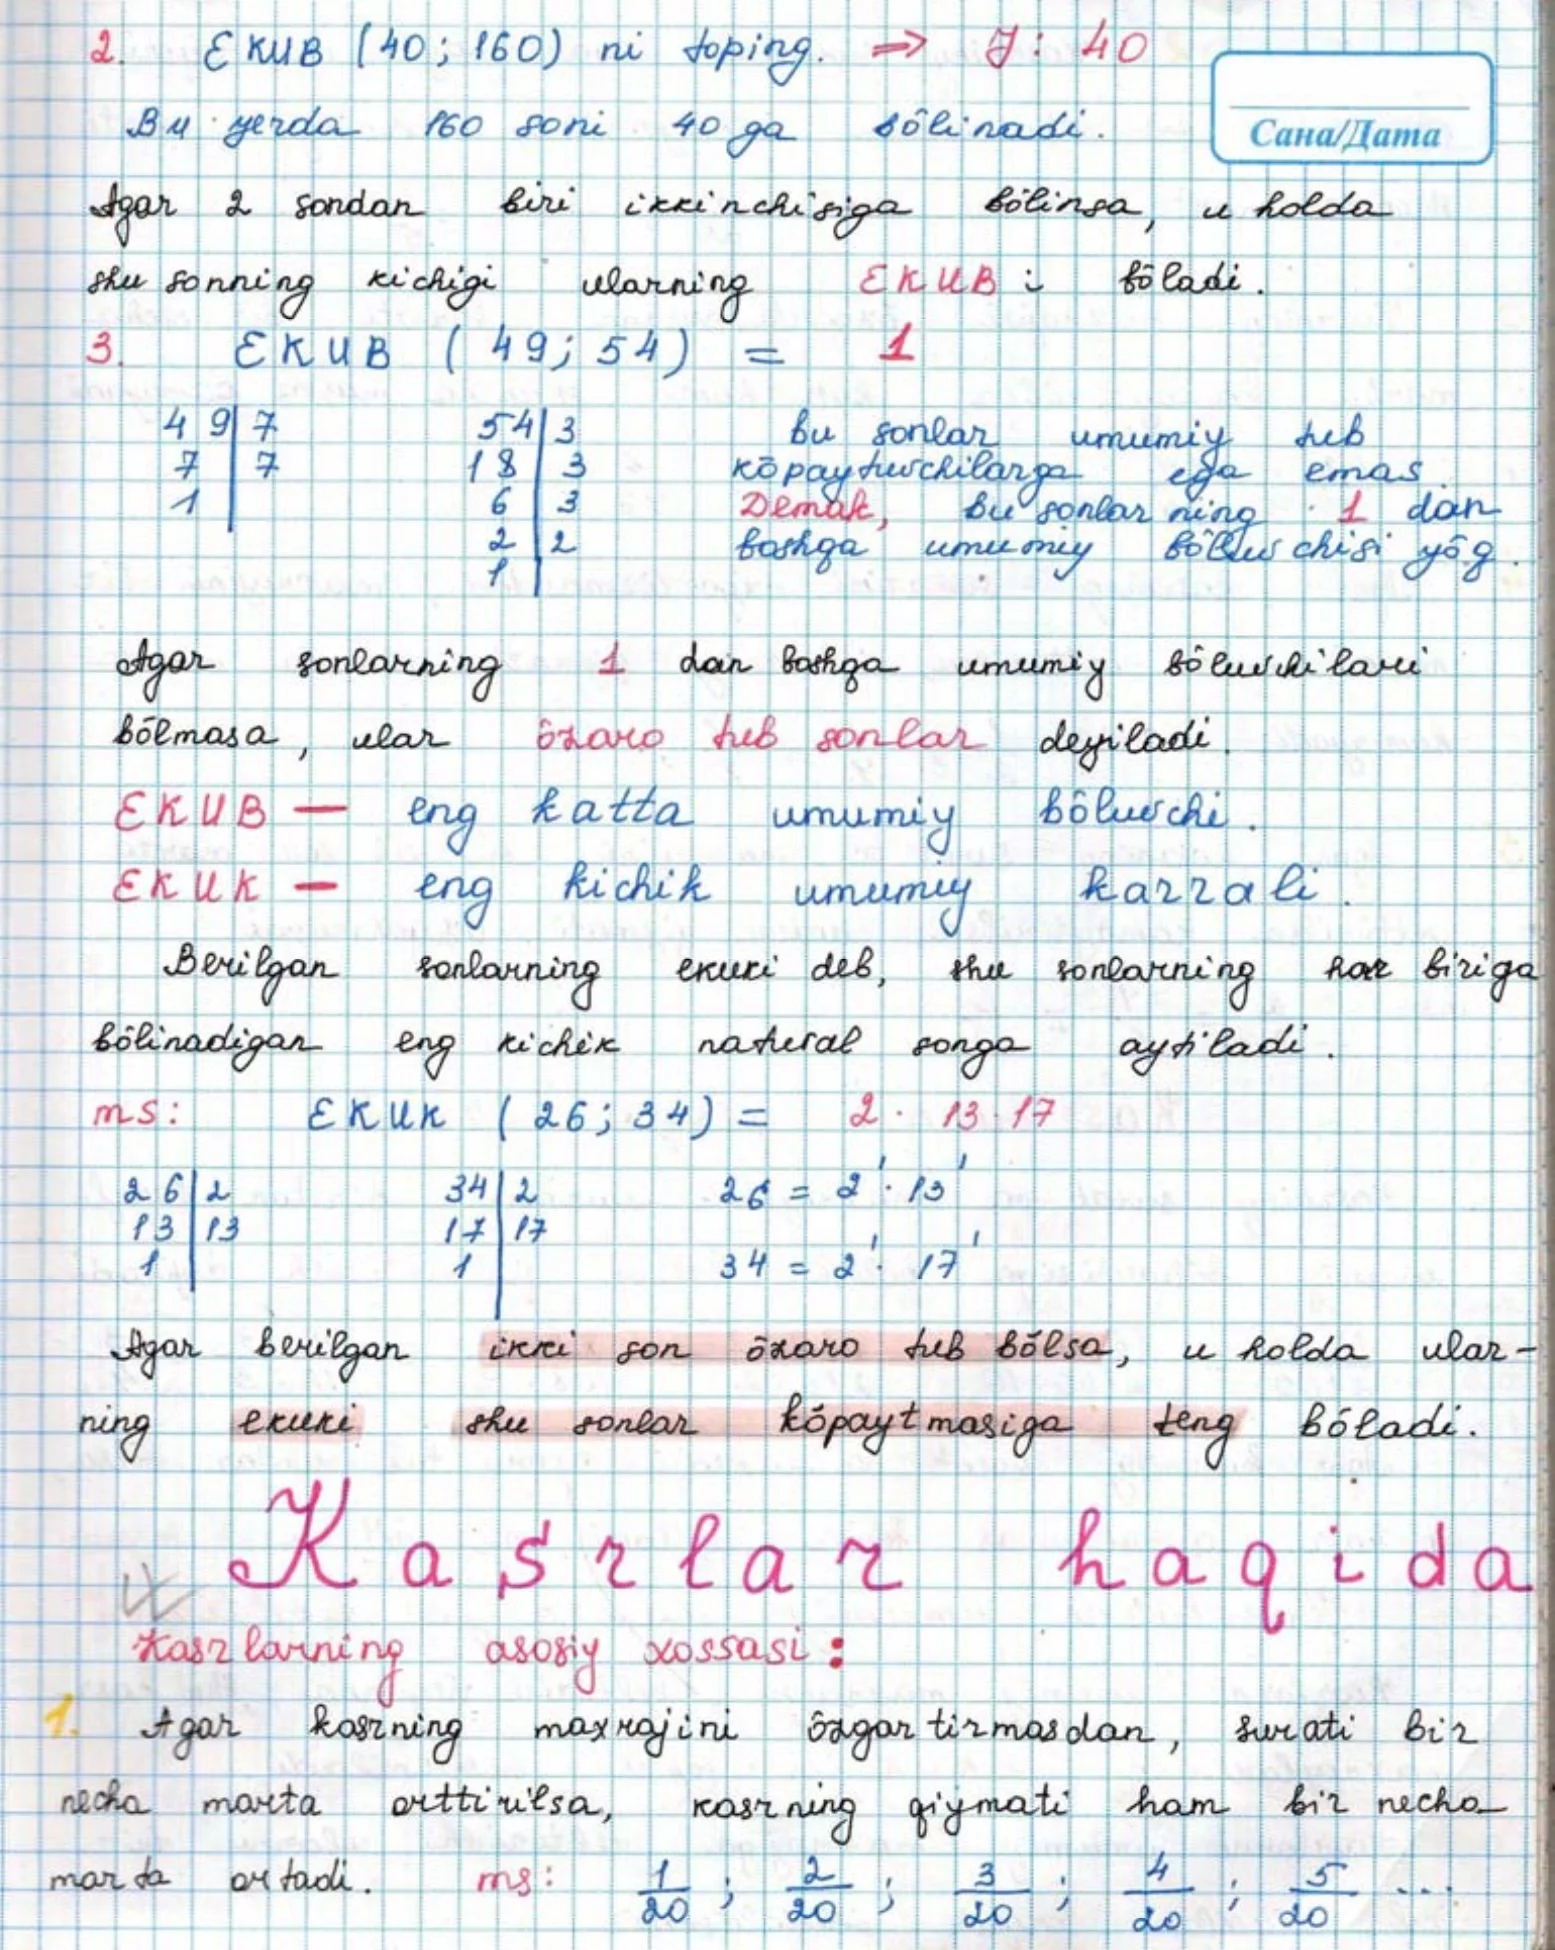 2. EKUB (40; 160) ni toping. ⇒ J: 40
Bu yerda 160 soni 40 ga bôlinadi.
Сана/Дата
Agar 2 sondan biri ikkinchisiga bôlinsa, u holda
shu sonning kichigi ularning EKUB i bôladi.
3. EKUB (49; 54) = 1
49 | 7 54 | 3 bu sonlar umumiy tub
7 | 7 18 | 3 kôpaytuvchilarga ega emas.
1 | 6 | 3 Demak, bu sonlarning 1 dan
2 | 2 boshqa umumiy bôluvchisi yôq.
1 |
Agar sonlarning 1 dan boshqa umumiy bôluvchilari
bôlmasa, ular ôzaro tub sonlar deyiladi.
EKUB — eng katta umumiy bôluvchi.
EKUK — eng kichik umumiy karrali.
Berilgan sonlarning ekuki deb, shu sonlarning har biriga
bôlinadigan eng kichik natural songa aytiladi.
ms: EKUK (26; 34) = 2 · 13 · 17
26 | 2 34 | 2 26 = 2¹ · 13¹
13 | 13 17 | 17
1 | 1 | 34 = 2¹ · 17¹
Agar berilgan ikki son ôzaro tub bôlsa, u holda ular-
ning ekuki shu sonlar kôpaytmasiga teng bôladi.
Kasrlar haqida
Kasrlarning asosiy xossasi:
1. Agar kasrning maxrajini ôzgartirmasdan, surati bir
necha marta orttirilsa, kasrning qiymati ham bir necha
marta ortadi. ms: 1/20 ; 2/20 ; 3/20 ; 4/20 ; 5/20 ...